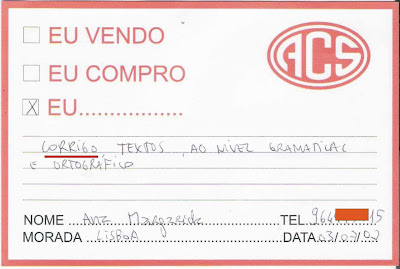 EU VENDO
ACS
EU COMPRO
X EU.................
CORRIGO TEXTOS, AO NÍVEL GRAMATICAL
E ORTOGRÁFICO
NOME Ana Margarida TEL. 964 15
MORADA LISBOA DATA 03/07/07